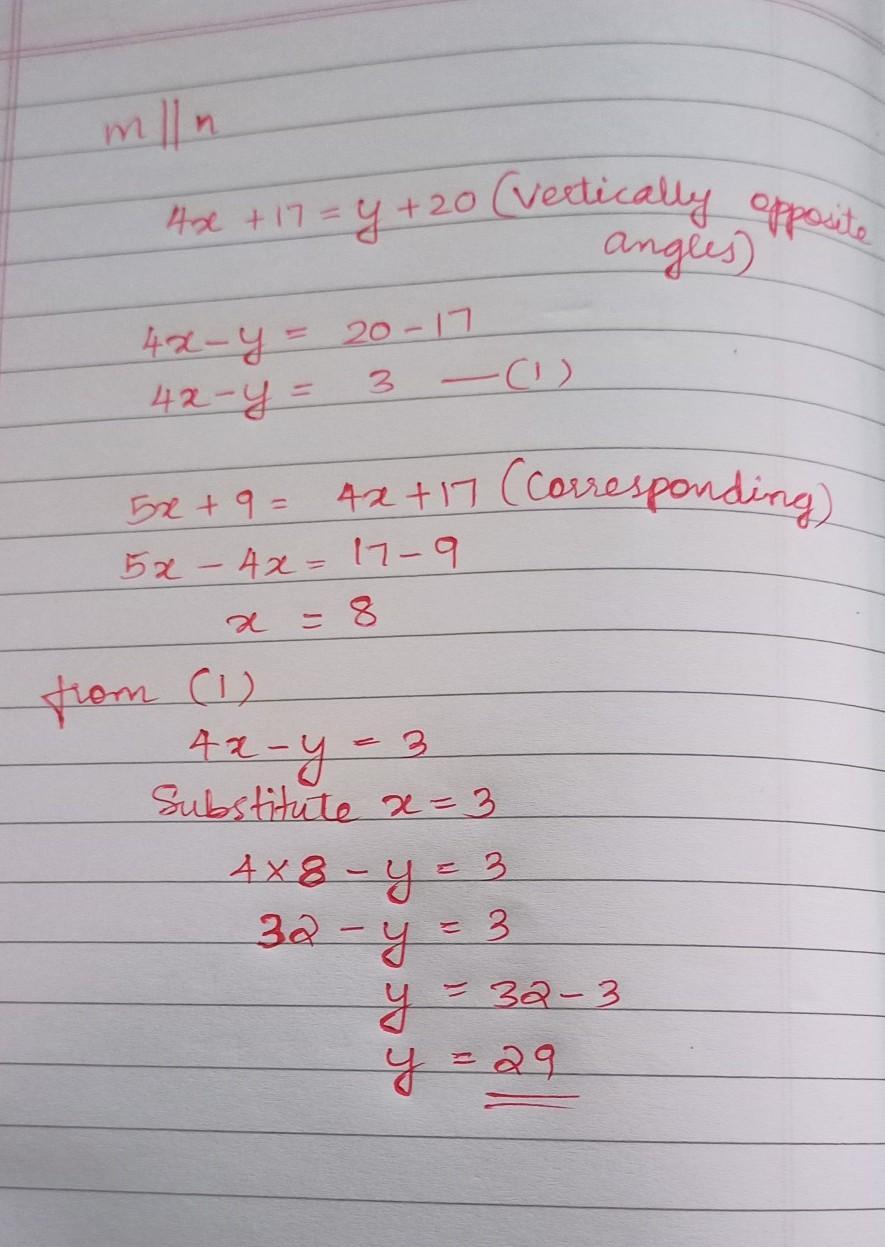 m || n
4x + 17 = y + 20 (Vertically opposite
angles)
4x - y = 20 - 17
4x - y = 3 — (1)
5x + 9 = 4x + 17 (Corresponding)
5x - 4x = 17 - 9
x = 8
from (1)
4x - y = 3
Substitute x = 3
4 × 8 - y = 3
32 - y = 3
y = 32 - 3
y = 29